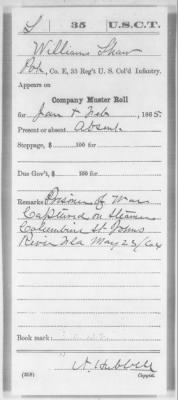 S | 35 | U.S.C.T.
William Shaw
Pvt., Co. E, 35 Reg't U. S. Col'd Infantry.
Appears on
Company Muster Roll
for Jan & Feb, 1865.
Present or absent Absent
Stoppage, $ 100 for
Due Gov't, $ 100 for
Remarks: Prisoner of War
Captured on Steamer
Columbine St Johns
River Fla May 23/64
Book mark:
A. Hubbell
(358) Copyist.